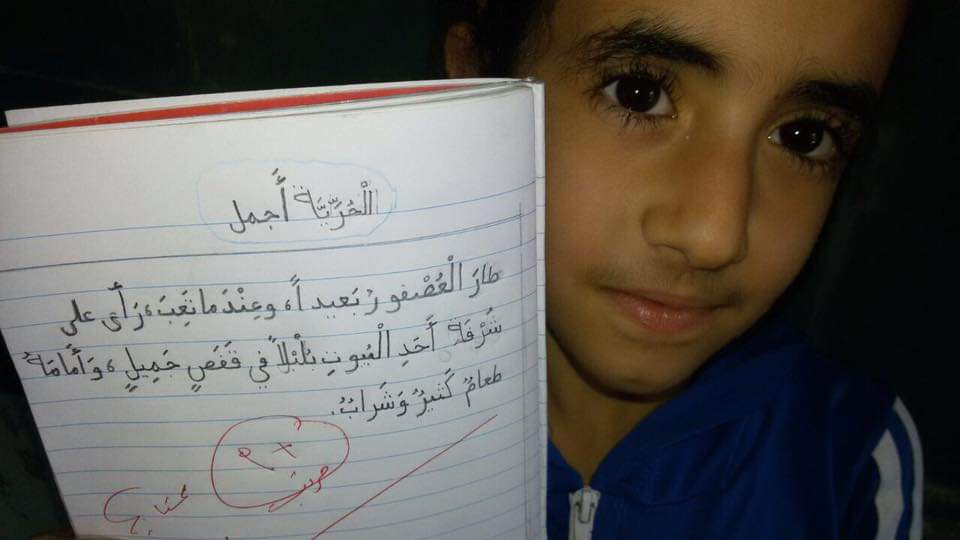 الْحُرِّيَّة أَجمل
طارَ الْعُصْفورُ بَعيداً، وعِنْدَما تَعِبَ، رَأَى على
شُرْفَةِ أَحَدِ الْبُيوتِ بُلْبُلاً في قَفَصٍ جَميلٍ، وَأَمامَهُ
طعامٌ كَثيرٌ وَشَرابٌ.